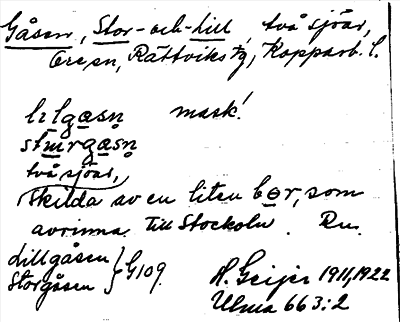 Gåsen, Stor- och -till, två sjöar,
Ore sn, Rättviks tg, Kopparb. l.
lɩlgɑsn̥ mask!
stɯrgɑsn̥
två sjöar,
skilda av en liten bɵr, som
avrinna till Stockoln. Rn.
Lillgåsen } G109.
Storgåsen
H. Geijer 1911, 1922
Ulma 663:2